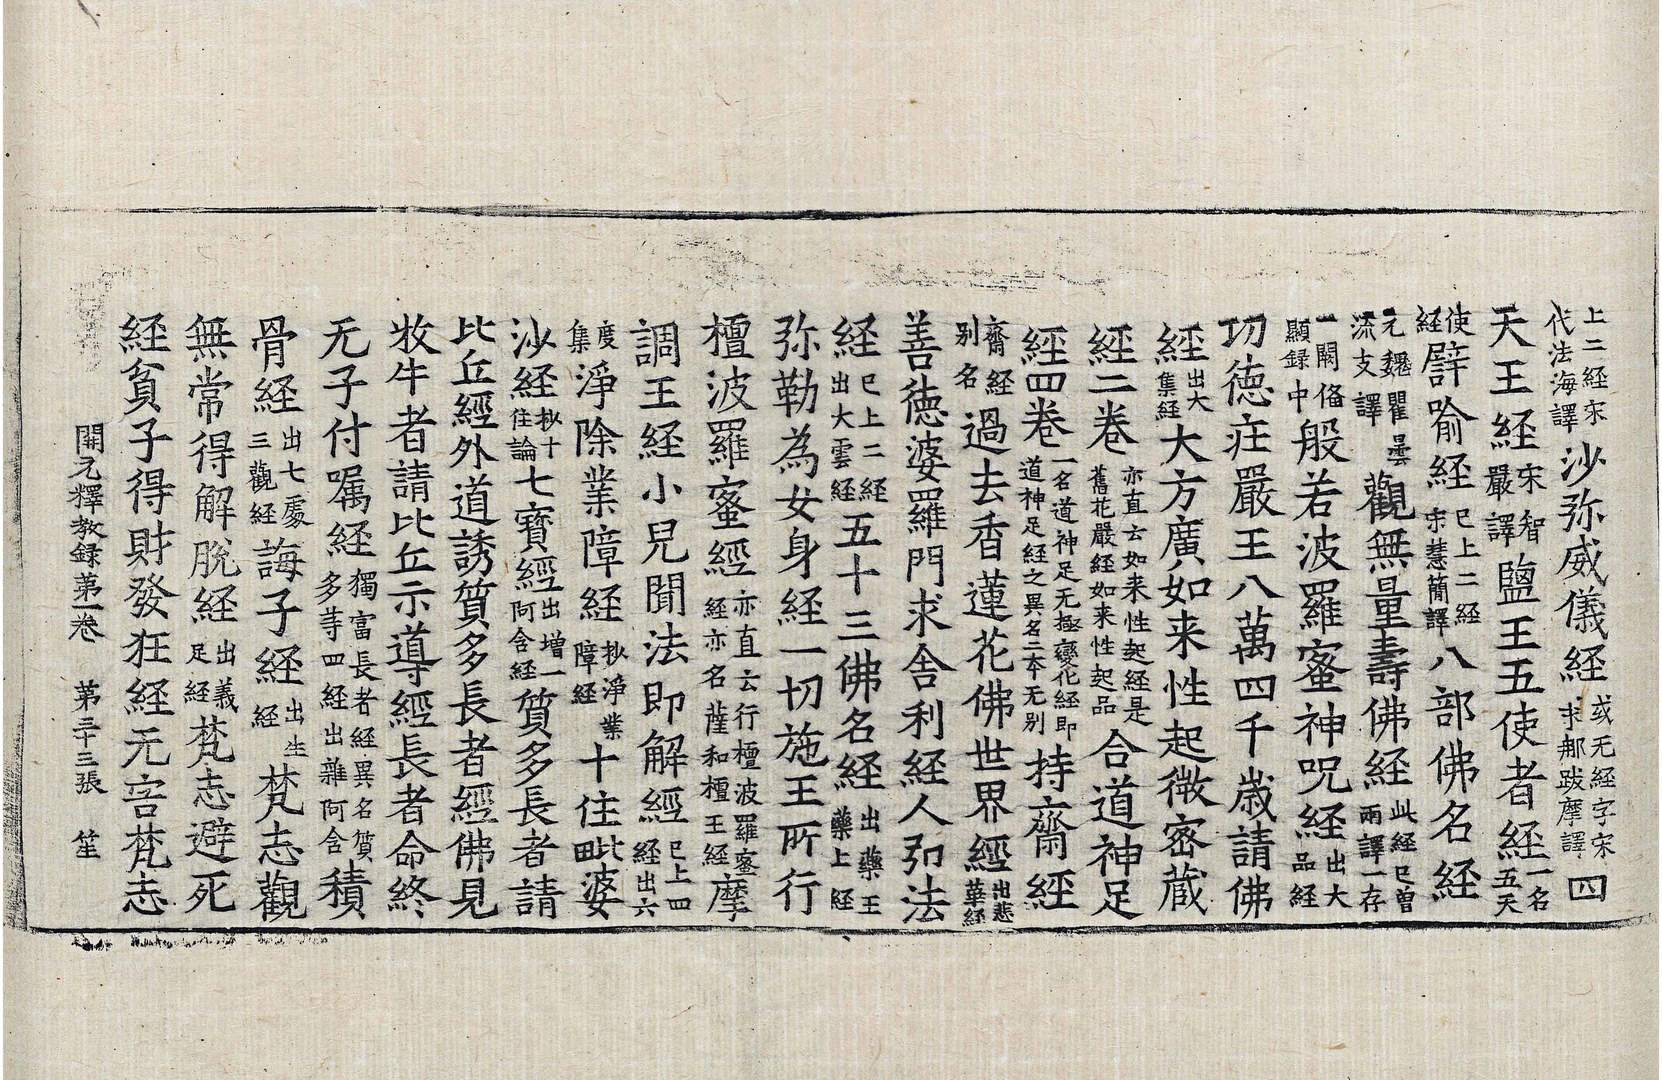 上二經宋代法海譯沙弥威儀經或无經字宋求那跋摩譯四
天王經宋智嚴譯鹽王五使者經一名五天
使經譬喻經已上二經宋慧簡譯八部佛名經
元魏瞿曇流支譯觀無量壽佛經此經已曾兩譯一存
一闕俻顯録中般若波羅蜜神呪經出大品經
功德庄嚴王八萬四千歲請佛
經出大集經大方廣如来性起微密蔵
經二卷亦直云如来性起經是舊花嚴經如来性起品合道神足
經四卷一名道神足无極變化經即道神足經之異名二本无别持齋經
齋經别名過去香蓮花佛世界經出悲華經
善德婆羅門求舍利經人弥法
經已上二經出大雲經五十三佛名經出藥王藥上經
弥勒為女身經一切施王所行
檀波羅蜜經亦直云行檀波羅蜜經亦名薩和檀王經摩
調王經小兒聞法即解經已上四經出六
度集淨除業障經抄淨業障經十住毗婆
沙經抄十住論七寶經出增一阿含經質多長者請
比丘經外道誘質多長者經佛見
牧牛者請比丘示導經長者命終
无子付嘱經獨富長者經異名質多䒭四經出雜阿含積
骨經出七處三觀經誨子經出生經梵志觀
無常得解脫經出義足經梵志避死
經貧子得財發狂經无害梵志
開元釋教録苐一卷　苐三十三張　笙